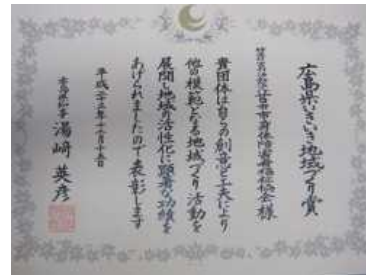 広島県いきいき地域づくり賞
廿日市市身体障害者福祉協会様
貴団体は自らの創意と工夫により
他の模範となる地域づくり活動を
展開し地域の活性化に顕著な功績を
あげられましたので表彰します
平成二十三年十二月十五日
広島県知事 湯﨑英彦